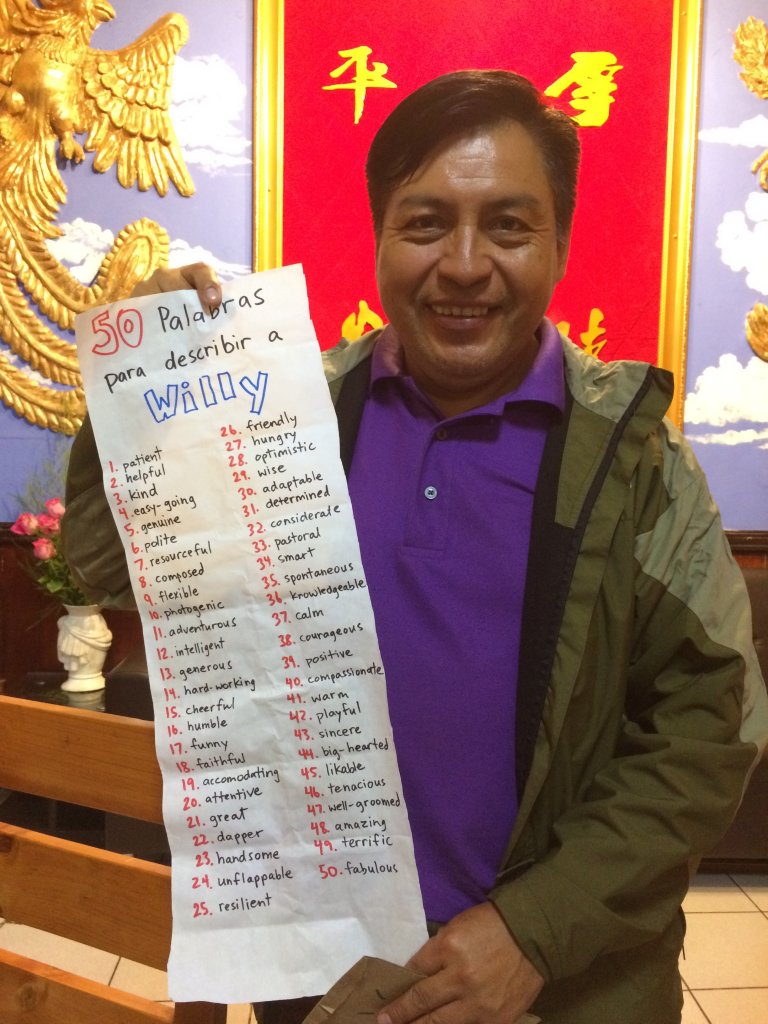 平
50 Palabras
para describir a
Willy
1. patient
2. helpful
3. kind
4. easy-going
5. genuine
6. polite
7. resourceful
8. composed
9. flexible
10. photogenic
11. adventurous
12. intelligent
13. generous
14. hard-working
15. cheerful
16. humble
17. funny
18. faithful
19. accomodating
20. attentive
21. great
22. dapper
23. handsome
24. unflappable
25. resilient
26. friendly
27. hungry
28. optimistic
29. wise
30. adaptable
31. determined
32. considerate
33. pastoral
34. smart
35. spontaneous
36. knowledgeable
37. calm
38. courageous
39. positive
40. compassionate
41. warm
42. playful
43. sincere
44. big-hearted
45. likable
46. tenacious
47. well-groomed
48. amazing
49. terrific
50. fabulous